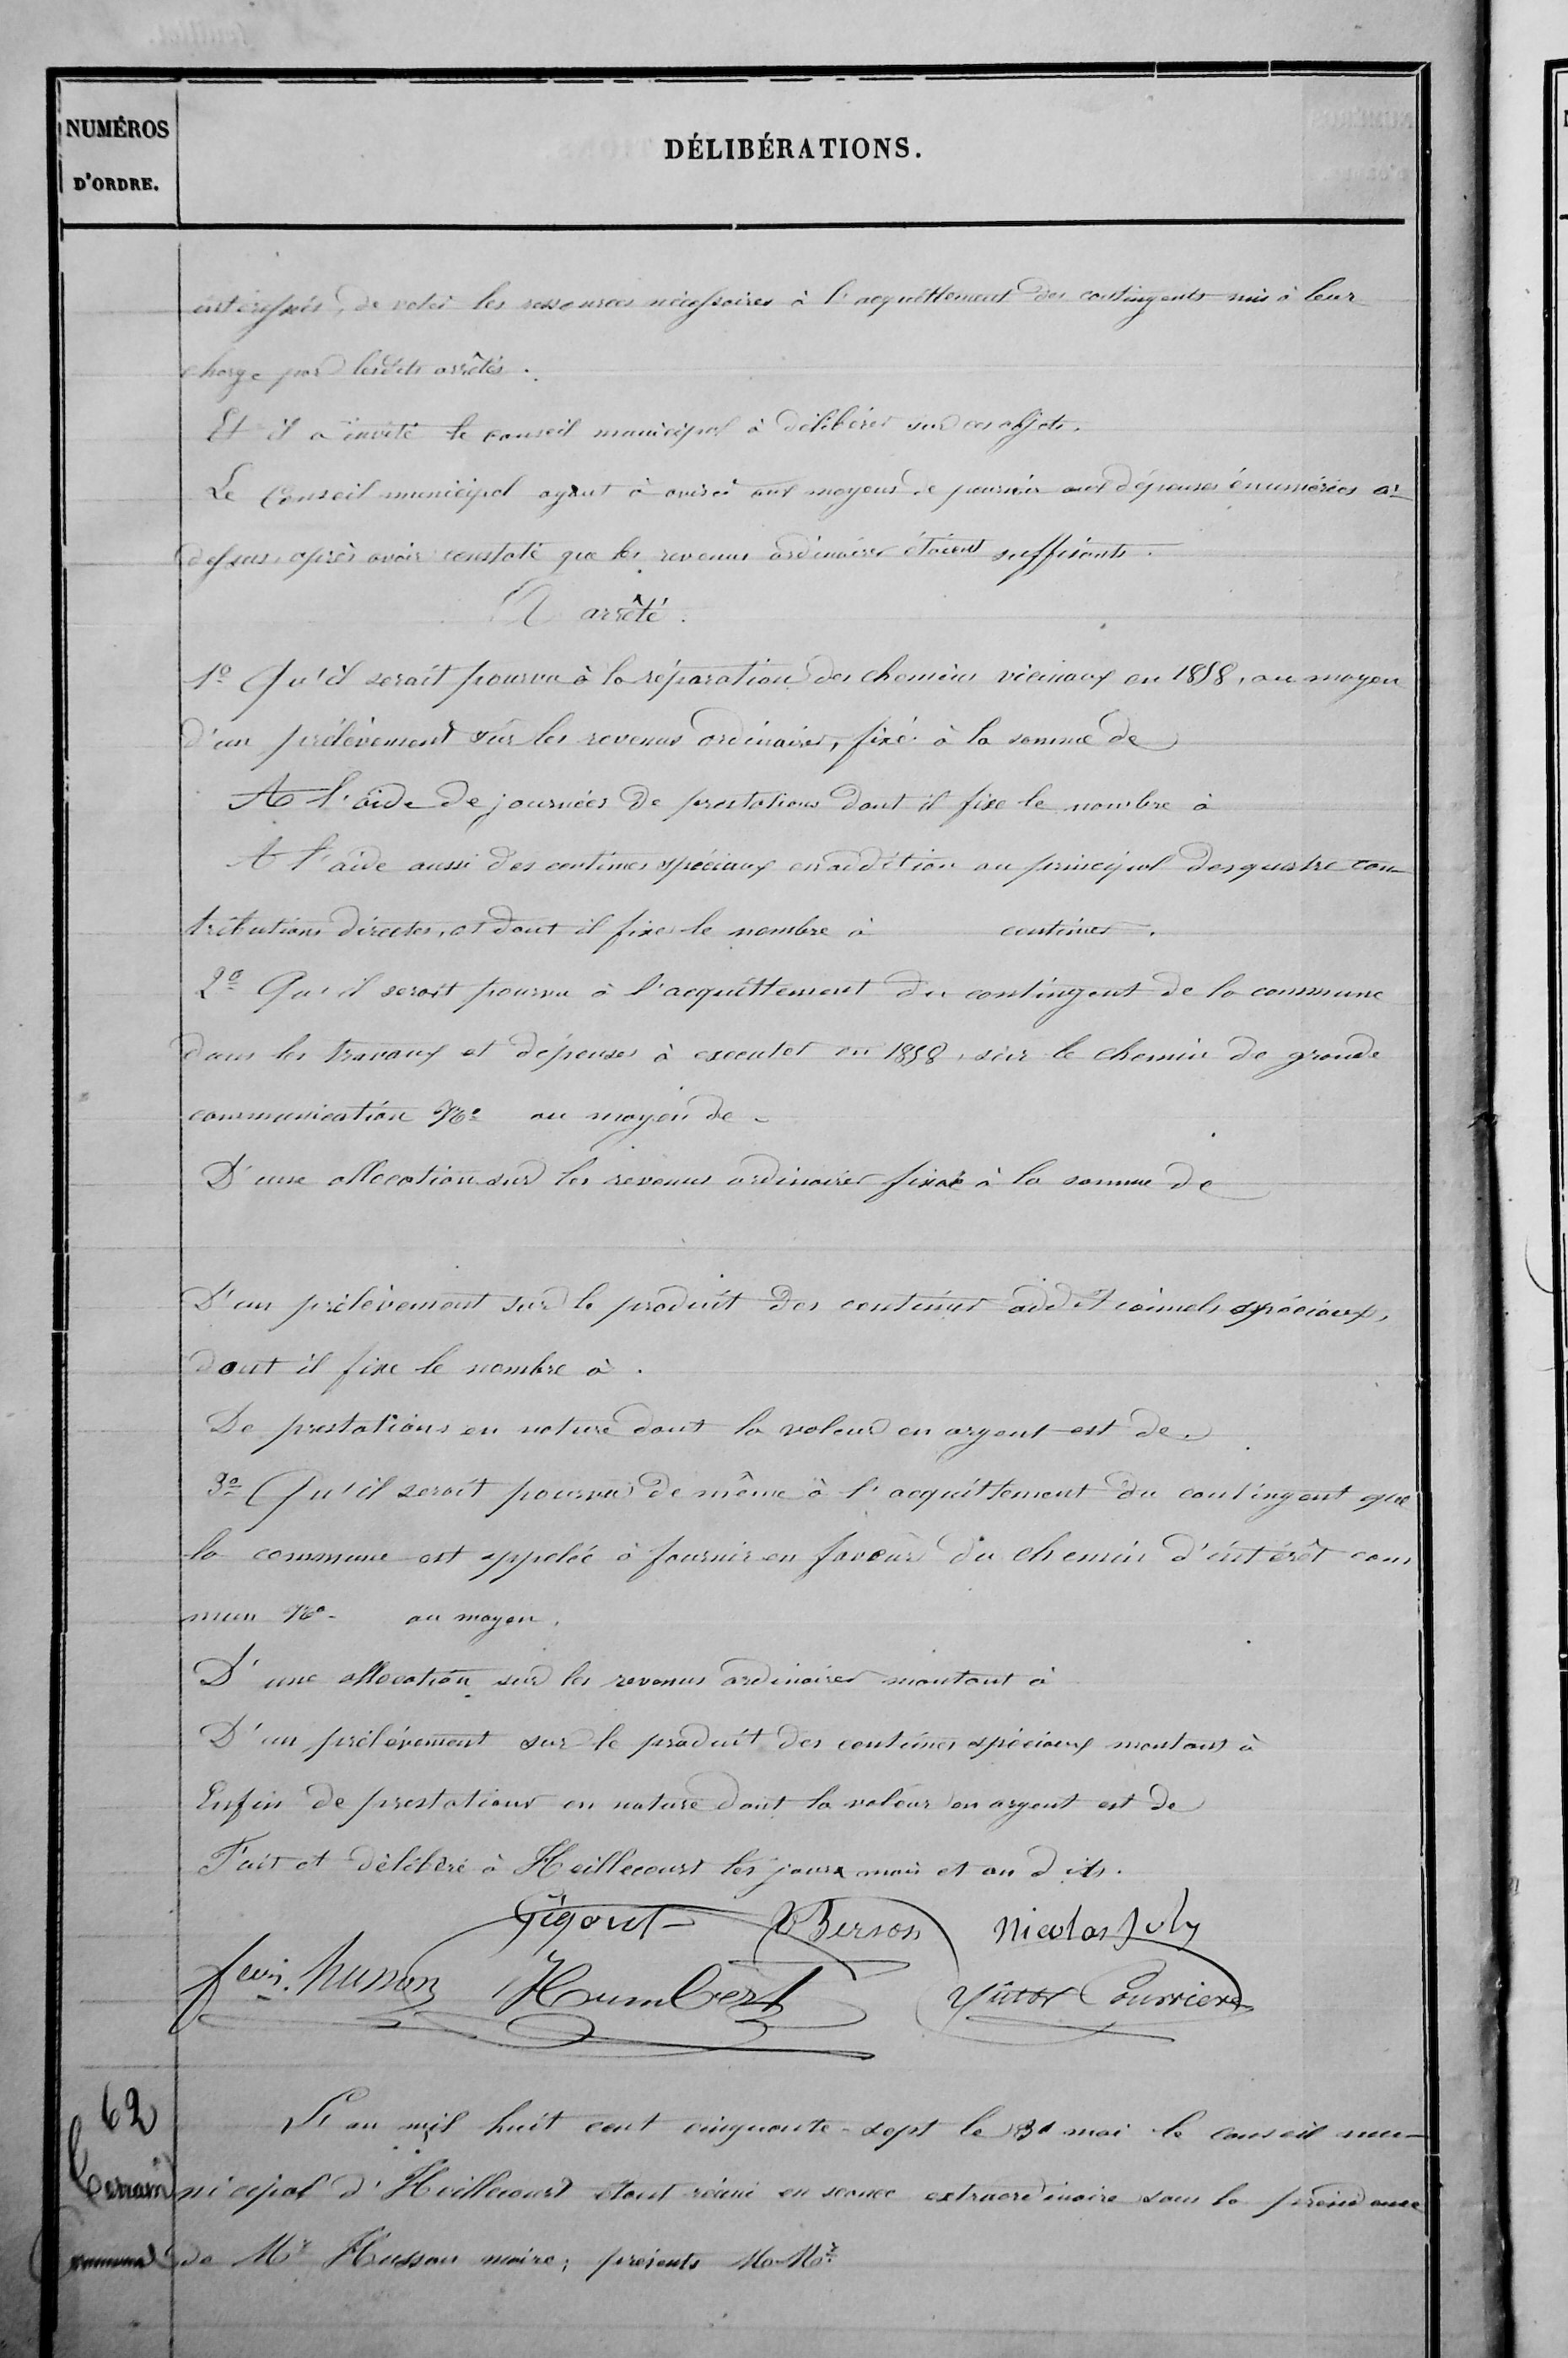 NUMÉROS
D'ORDRE.
DÉLIBÉRATIONS.
intéressés, de voter les ressources nécessaires à l'acquittement des contingents mis à leur
charge par lesdits arrêtés.
Et il a invité le conseil municipal à délibérer sur ces objets.
Le Conseil municipal ayant à aviser aux moyens de pourvoir aux dépenses énumérées ci-
dessus, après avoir constaté que les revenus ordinaires étaient suffisants.
A arrêté.
1º Qu'il serait pourvu à la réparation des chemins vicinaux en 1858, au moyen
d'un prélèvement sur les revenus ordinaires, fixé à la somme de
A l'aide de journées de prestations dont il fixe le nombre à
A l'aide aussi des centimes spéciaux en addition au principal des quatre con-
tributions directes, et dont il fixe le nombre à centimes.
2º Qu'il serait pourvu à l'acquittement du contingent de la commune
dans les travaux et dépenses à executer en 1858, sur le chemin de grande
communication Nº au moyen de
D'une allocation sur les revenus ordinaires fixée à la somme de
D'un prélèvement sur le produit des centimes additionnels spéciaux,
dont il fixe le nombre à.
De prestations en nature dont la valeur en argent est de.
3º Qu'il serait pourvu de même à l'acquittement du contingent que
la commune est appelée à fournir en faveur du chemin d'intérêt com
mun Nº au moyen.
D'une allocation sur les revenus ordinaires montant à
D'un prélèvement sur le produit des centimes spéciaux montant à
Enfin de prestations en nature dont la valeur en argent est de
Fait et délibéré à Heillecourt les jour mois et an dits.
Gigout Berson Nicolas Joly
husson Humbert Victor Courrier
62
L'an mil huit cent cinquante-sept le 31 mai le conseil mu-
Terrain
nicipal d'Heillecourt étant réuni en séance extraordinaire sous la présidence
communal
de Mr Husson maire; présents M. Mrs